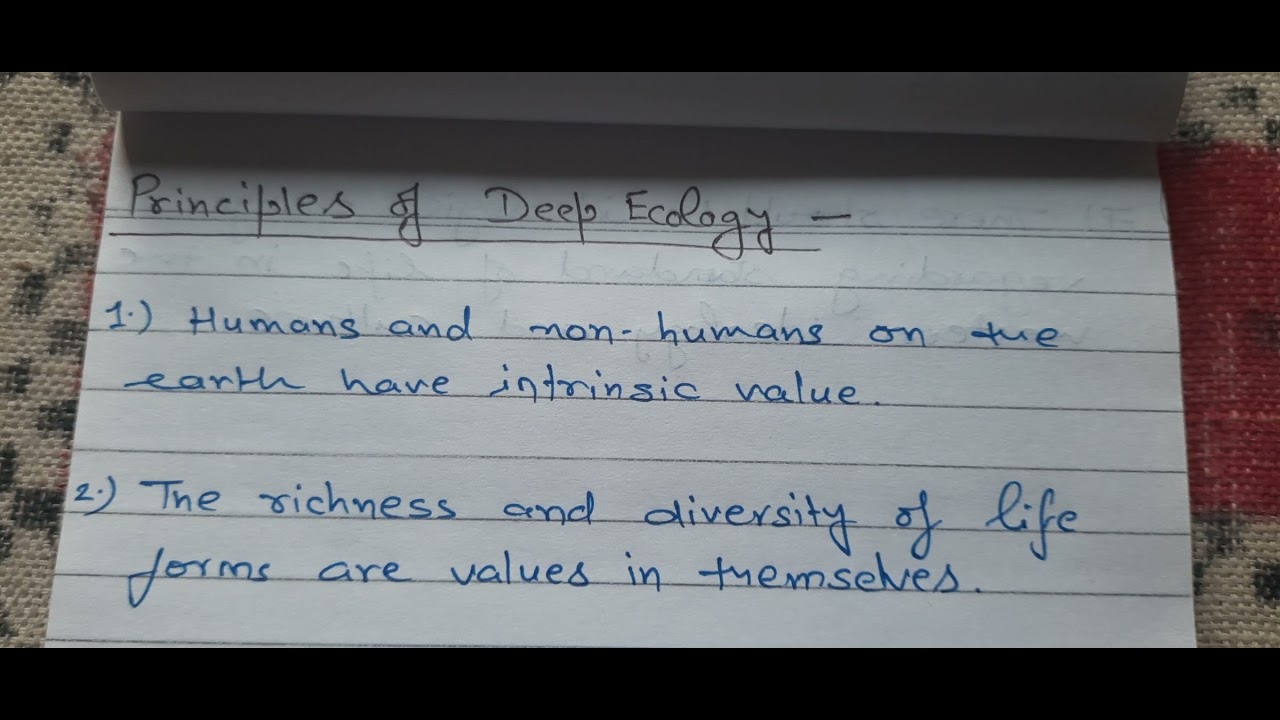 Principles of Deep Ecology —
1.) Humans and non-humans on the
earth have intrinsic value.
2.) The richness and diversity of life
forms are values in themselves.